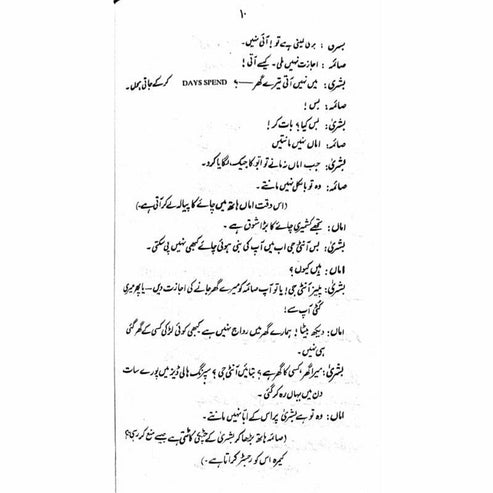 ۱۰
بشریٰ: ہی لینی ہے تو! آئی نہیں۔
صائمہ: اجازت نہیں ملی۔ کیسے آتی!
بشریٰ: میں نہیں آتی تیرے گھر — ؟ DAYS SPEND کر کے جاتی ہوں۔
صائمہ: بس!
بشریٰ: بس کیا؟ بات کر!
صائمہ: اماں نہیں مانتیں
بشریٰ: جب اماں نہ مانے تو ابو کا جیک لگایا کرو۔
صائمہ: وہ تو بالکل نہیں مانتے۔
(اس وقت اماں ہاتھ میں چائے کا پیالہ لے کر آتی ہے۔)
اماں: تجھے کشمیری چائے کا بڑا شوق ہے۔
بشریٰ: بس آنٹی جی اب میں آپ کی بنی ہوئی چائے کبھی نہیں پی سکتی۔
اماں: ہیں کیوں؟
بشریٰ: پلیز آنٹی جی! یا تو آپ صائمہ کو میرے گھر جانے کی اجازت دیں — یا پھر میری
کٹی آپ سے!
اماں: دیکھ بیٹا! ہمارے گھر میں رواج نہیں ہے کبھی کوئی لڑکی کسی کے گھر گئی
ہی نہیں۔
بشریٰ: میرا گھر، کسی کا گھر ہے؟ بتائیں آنٹی جی؟ سپرنگ ہالی ڈیز میں پورے سات
دن میں یہاں رہ کر گئی۔
اماں: وہ تو ہے بشریٰ پر اس کے ابا نہیں مانتے۔
(صائمہ ہاتھ بڑھا کر بشریٰ کے چٹکی کاٹتی ہے جیسے منع کر رہی؟
کیمرہ اس کو رجسٹر کراتا ہے۔)